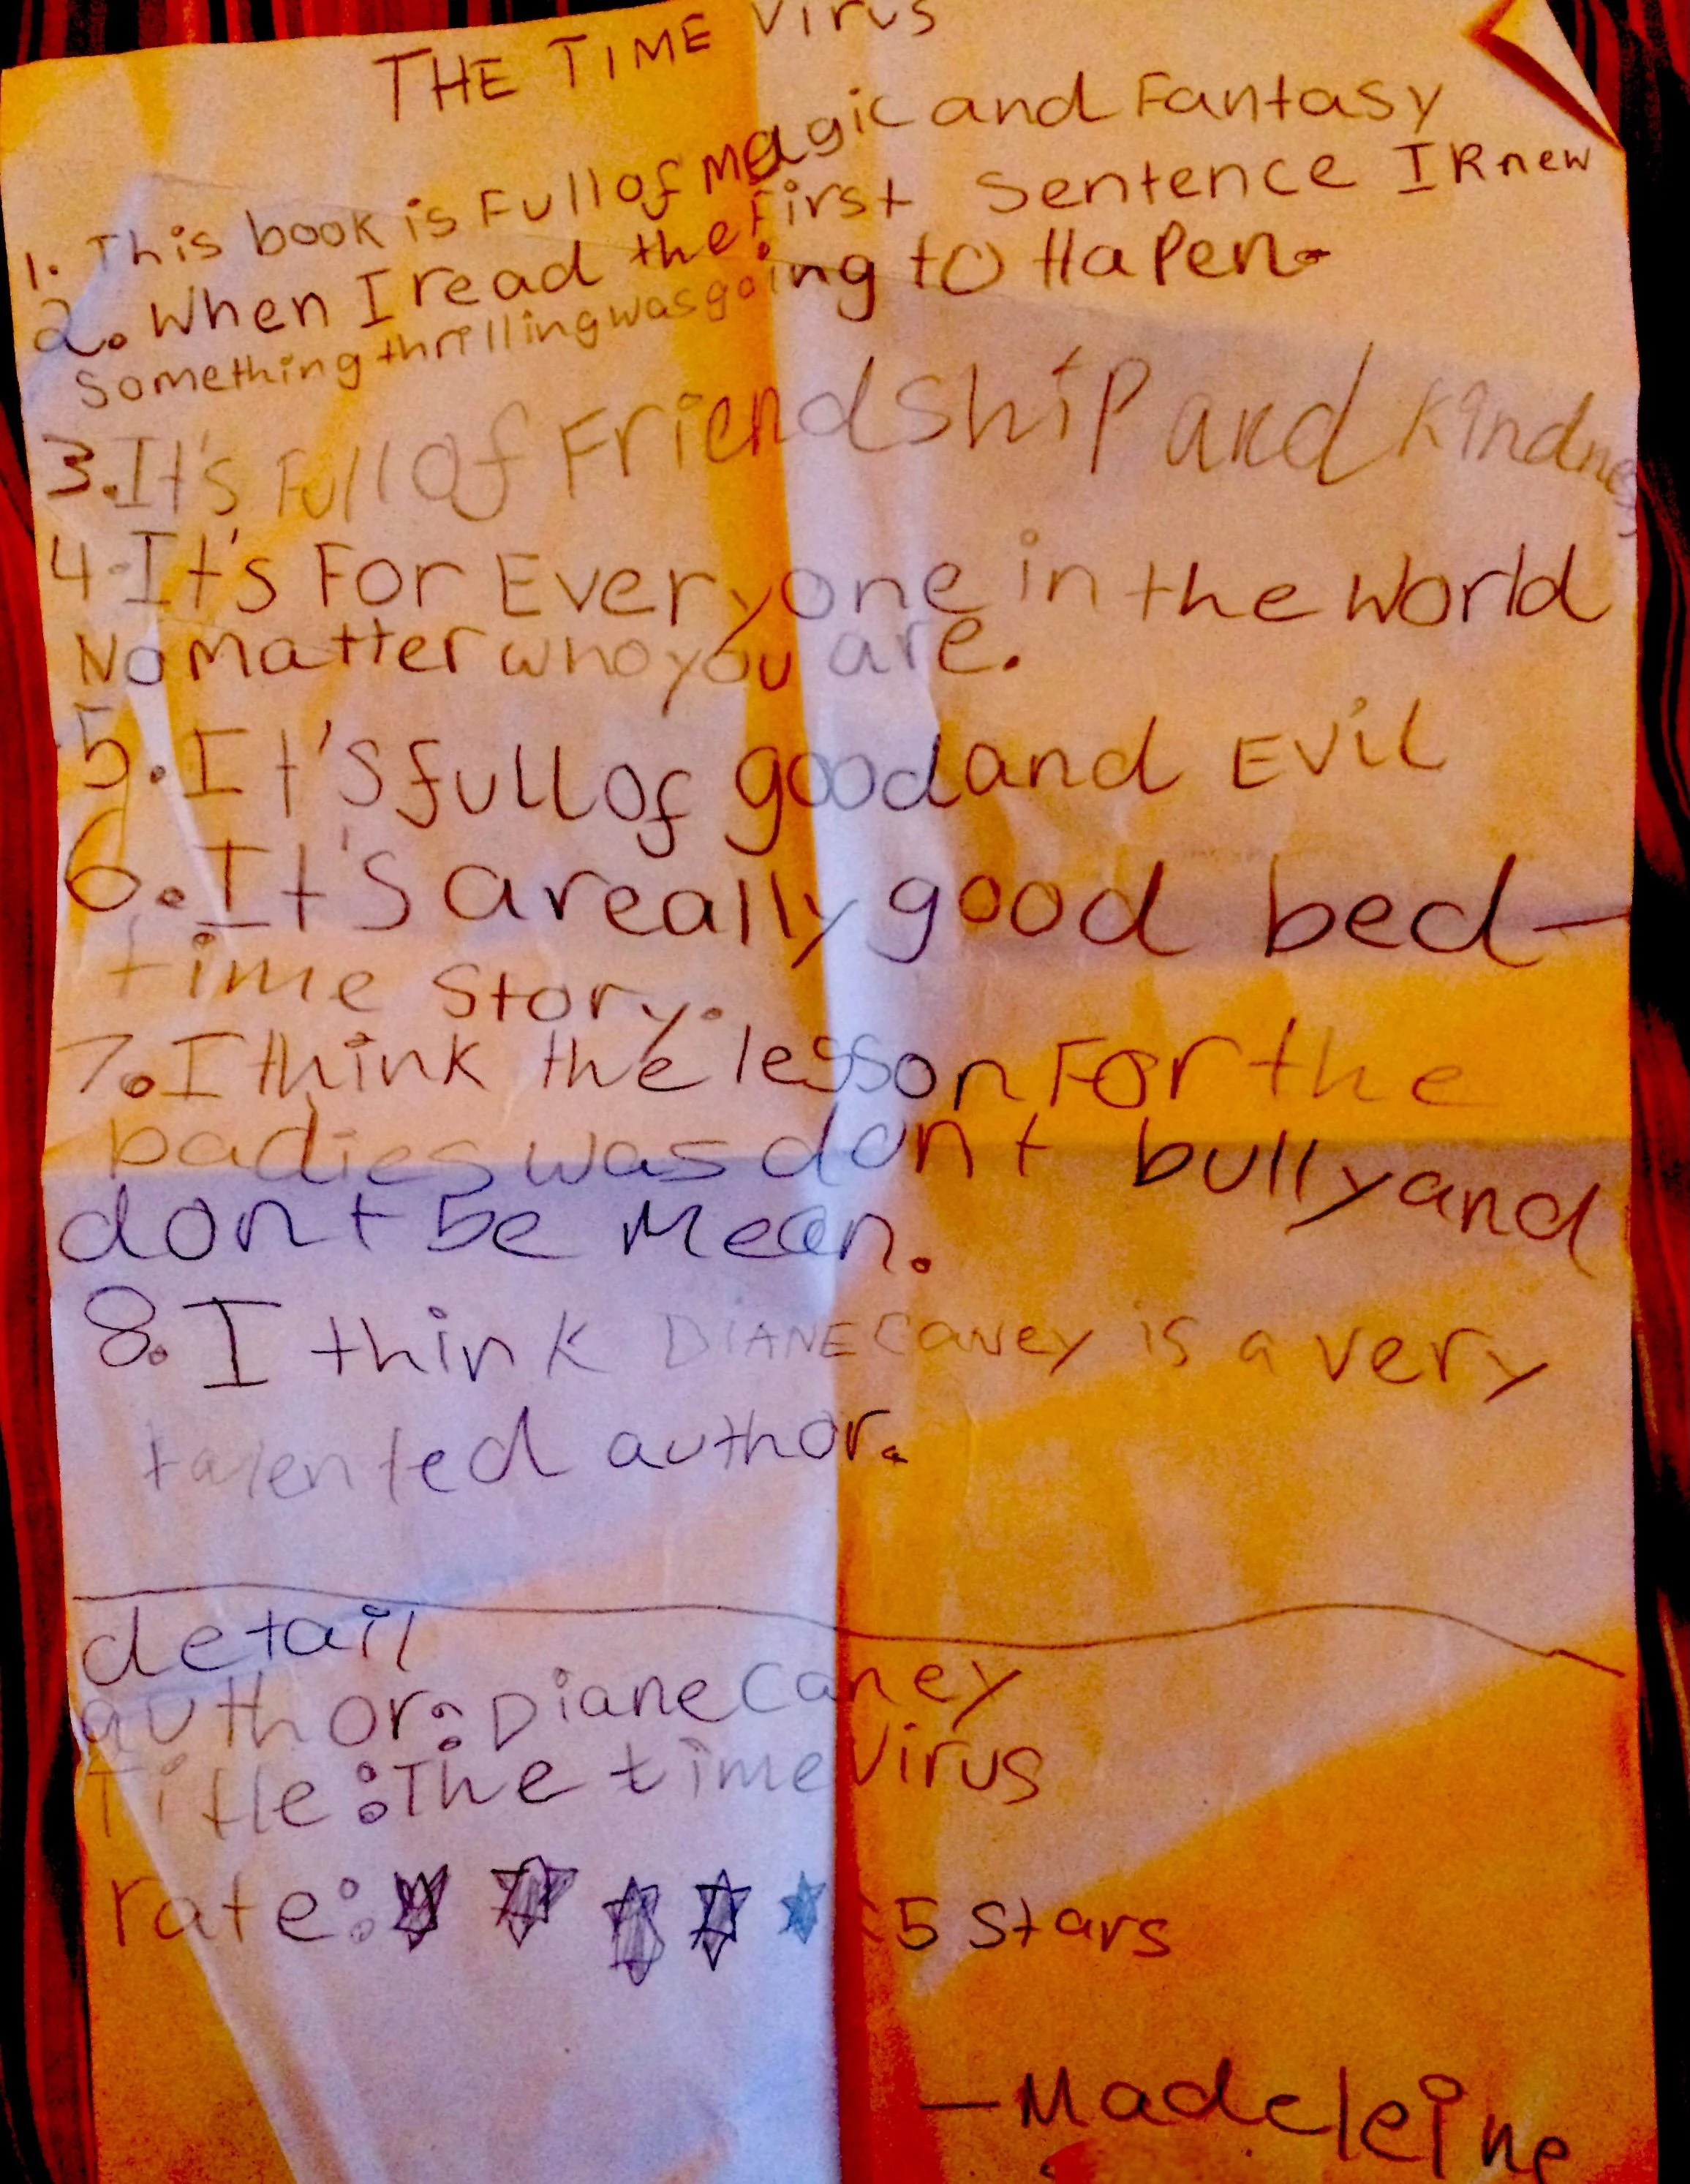 THE TIME Virus
1. This book is Full of Magic and Fantasy
2. When I read the First Sentence I Knew
Something thrilling was going to HaPen.
3. It's Full of FriendshiP and kindness
4. It's For Everyone in the World
No Matter who you are.
5. It's full of good and Evil
6. It's a really good bed-
time story.
7. I think the lesson For the
badies was dont bully and
dont be Mean.
8. I think DIANE Caney is a very
talented author.
detail
author: Diane Caney
Title: The time Virus
rate: 5 stars
- Madeleine